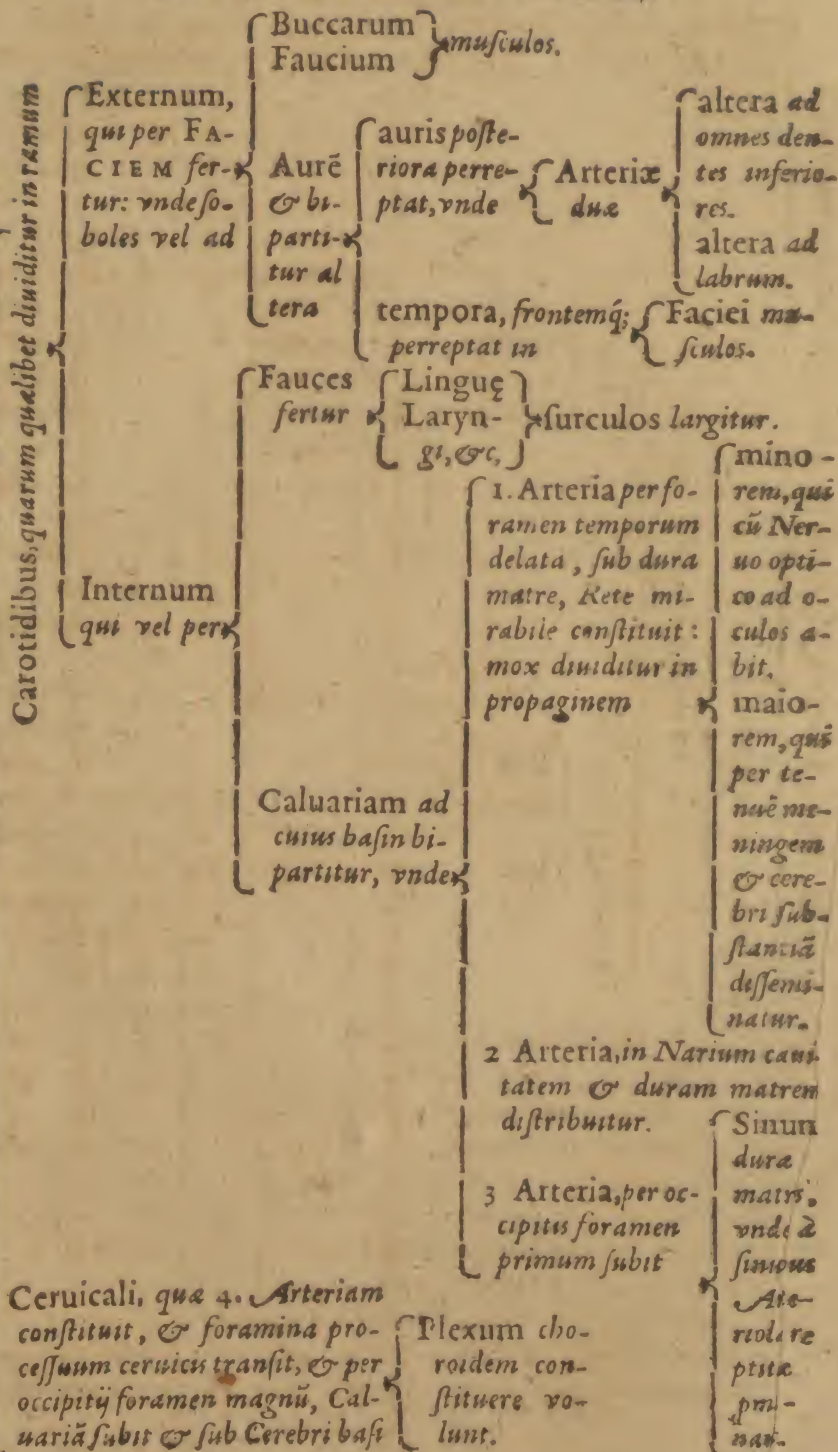 Carotidibus, quarum quælibet diuiditur in ramum
Externum,
qui per FA-
CIEM fer-
tur: vnde ſo-
boles vel ad
Buccarum
Faucium
muſculos.
Aurē
& bi-
parti-
tur al
tera
auris poſte-
riora perre-
ptat, vnde
Arteriæ
duæ
altera ad
omnes den-
tes inferio-
res.
altera ad
labrum.
tempora, frontemq́;
perreptat in
Faciei mu-
ſculos.
Internum
qui vel per
Fauces
fertur
Linguę
Laryn-
gi, &c,
ſurculos largitur.
Caluariam ad
cuius baſin bi-
partitur, vnde
1. Arteria per fo-
ramen temporum
delata, ſub dura
matre, Rete mi-
rabile conſtituit:
mox diuiditur in
propaginem
mino-
rem, qui
cū Ner-
uo opti-
co ad o-
culos a-
bit.
maio-
rem, qui
per te-
nuē me-
ningem
& cere-
bri ſub-
ſtantiā
diſſemi-
natur.
2 Arteria, in Narium caui-
tatem & duram matrem
diſtribuitur.
3 Arteria, per oc-
cipitis foramen
primum ſubit
Sinum
duræ
matri,
vnde à
Arte-
riolæ re
ptitæ
Ceruicali, quæ 4. Arteriam
conſtituit, & foramina pro-
ceſſuum ceruicis tranſit, & per
occipitij foramen magnū, Cal-
uariā ſubit & ſub Cerebri baſi
Plexum cho-
roidem con-
ſtituere vo-
lunt.